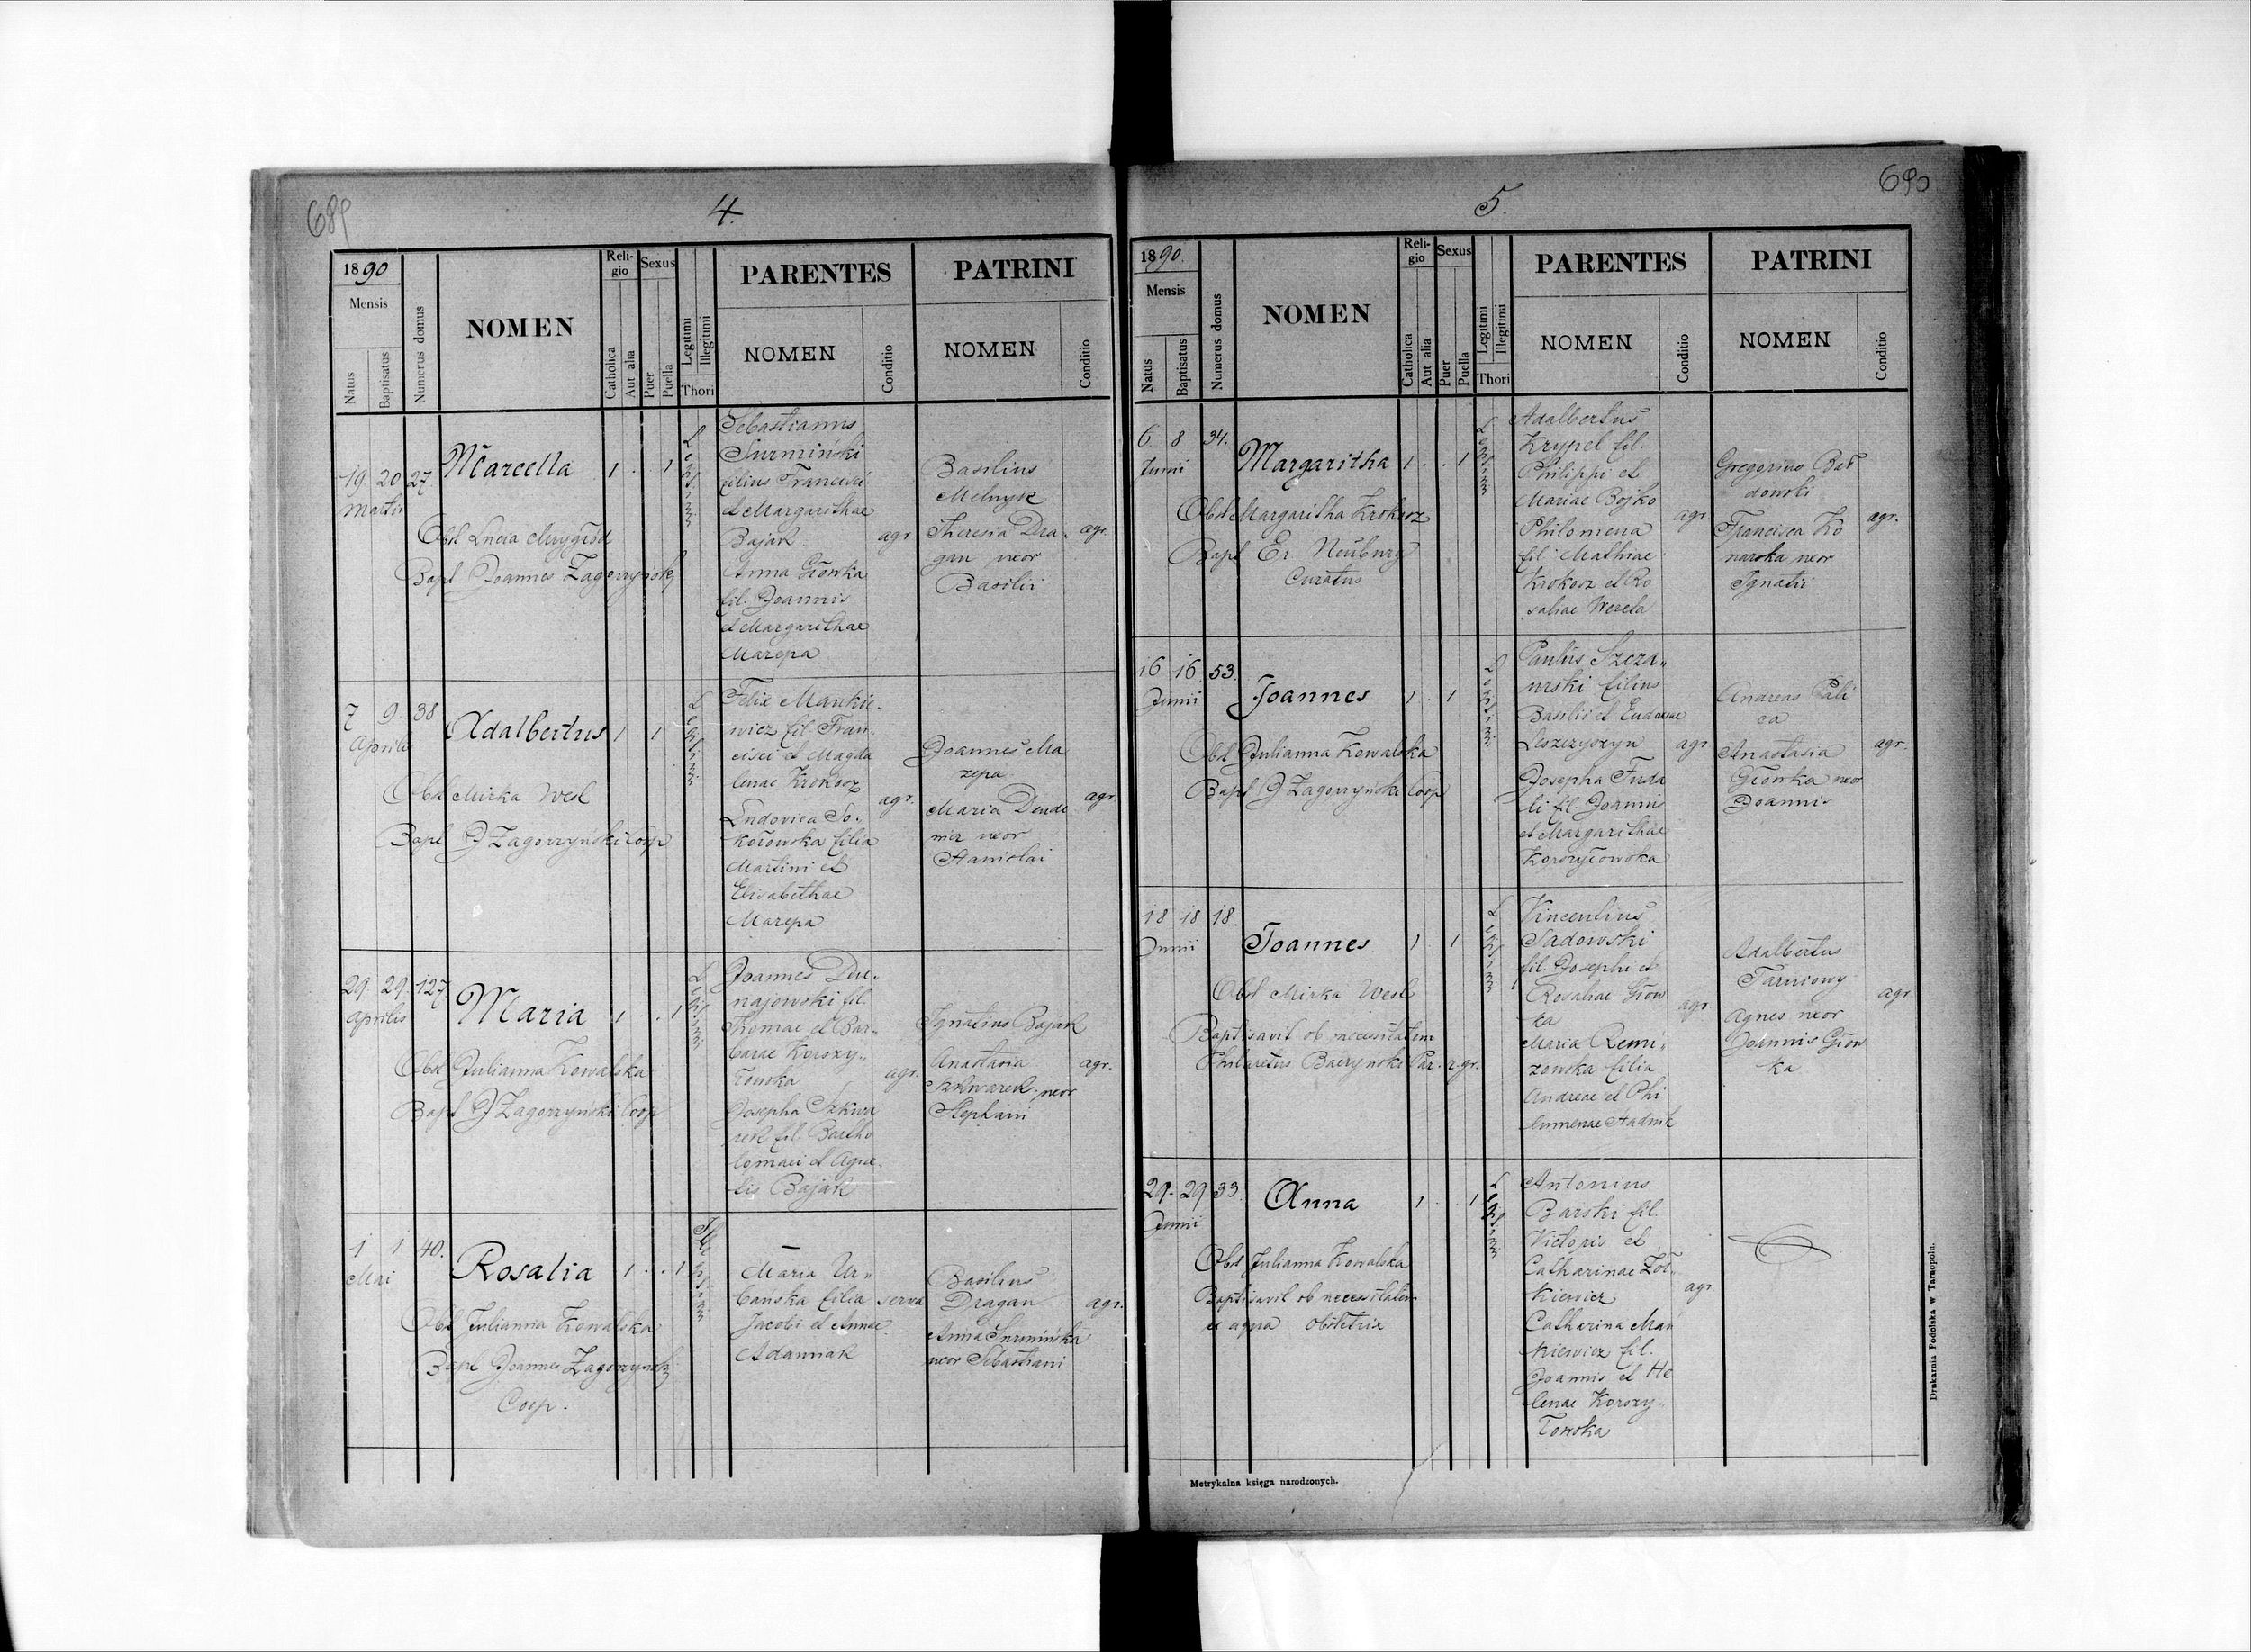 689
4.
1890
Mensis
Natus
Baptisatus
Numerus domus
NOMEN
Reli-
gio
Catholica
Aut alia
Sexus
Puer
Puella
Legitimi
Illegitimi
Thori
PARENTES
NOMEN
Conditio
PATRINI
NOMEN
Conditio
19 20 27
Martii
Marcella
1 . . 1
Obst Lucia Mnygród
Bapt Joannes Zagorzyński
Sebastianus
Surmiński
filius Francisci
et Margarithae
Bajak
Anna Głowka
fil. Joannis
et Margarithae
Mazepa
agr
Basilius
Melnyk
Theresia Dra-
gan uxor
Basilii
agr.
7 9 38
Aprilis
Adalbertus
1 . 1
Obst Mirka Wesl
Bapt J Zagorzyński Coop
Felix Mankie-
wicz fil. Fran-
cisci et Magda
lenae Krokosz
Ludovica So-
kołowska filia
Martini et
Elisabethae
Mazepa
agr.
Joannes Ma
zepa
Maria Dende
uxor
Stanislai
agr
29 29 127
Aprilis
Maria
1 . . 1
Obst Julianna Kowalska
Bapt J Zagorzyński Coop
Joannes Du-
najewski fil.
Thomae et Bar-
barae Korszy-
łowska
Josepha Szkwa
rek fil. Bartho
lomaei et Agne-
tis Bajak
agr.
Ignatius Bajak
Anastasia
Szkwarek uxor
Stephani
agr.
1 1 40.
Mai
Rosalia
1 . . 1
Obst Julianna Kowalska
Bapt Joannes Zagorzyński
Coop.
Maria Ur-
banska filia
Jacobi et Annae
Adamiak
serva
Basilius
Dragan
Anna Surmińska
uxor Sebastiani
agr.
690
5.
1890.
Mensis
Natus
Baptisatus
Numerus domus
NOMEN
Reli-
gio
Catholica
Aut alia
Sexus
Puer
Puella
Legitimi
Illegitimi
Thori
PARENTES
NOMEN
Conditio
PATRINI
NOMEN
Conditio
6 8 34.
Junii
Margaritha
1 . . 1
Obst Margaritha Krokosz
Bapt Er Neuburg
Curatus
Adalbertus
Krypel fil.
Philippi et
Mariae Bojko
Philomena
fil. Mathiae
Krokosz et Ro
saliae Wereta
agr
Gregorius
dowski
Francisca Ko
narska uxor
Ignatii
agr.
16 16 53.
Junii
Joannes
1 . 1
Obst Julianna Kowalska
Bapt J Zagorzyński Coop
Paulus Szcza-
urski filius
Basilii et Eudoxiae
Leszczyszyn
Josepha Fuda
li fil. Joannis
et Margarithae
Korszyłowska
agr
Andreas Pali
ca
Anastasia
Głowka uxor
Joannis
agr.
18 18 18.
Junii
Joannes
1 . 1
Obst Mirka Wesl
Baptisavit ob necessitatem
Philaretus Baczyński Par. r. gr.
Vincentius
Sadowski
fil. Josephi et
Rosaliae Głow
ka
Maria Remi-
zowska filia
Andreae et Phi
lumenae Hadnik
agr
Adalbertus
Tarniowy
Agnes uxor
Joannis Głow
ka
agr
29. 29 33.
Junii
Anna
1 . . 1
Obst Julianna Kowalska
Baptisavit ob necessitatem
ex aqua obstetrix
Antonius
Barski fil.
Victoris et
Catharinae Żoł-
kiewicz
Catharina Man
kiewicz fil.
Joannis et He
lenae Korszy-
łowska
agr
Metrykalna księga narodzonych.
Drukarnia Podolska w Tarnopolu.